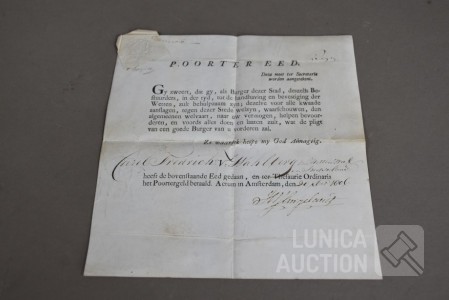 POORTER EED.
Deze moet ter Secretarie
worden aangetekent.
Gy zweert, dat gy, als Burger dezer Stad, derzelfs Be-
stuurders, in der tyd, tot de handhaving en bevestiging der
Wetten, zult behulpzaam zyn; dezelve voor alle kwade
aanslagen, tegen deze Stads welzyn, waarschouwen, den
algemeenen welvaart, naar uw vermogen, helpen bevor-
deren, en voords alles doen en laaten zult, wat de pligt
van een goede Burger van u vorderen zal.
Zo waarlyk helpe my God Almagtig.
Carel Fredrich
heeft de bovenstaande Eed gedaan, en ter Thesaurie Ordinaris
het Poortergeld betaald. Actum in Amsterdam, den
LUNICA
AUCTION